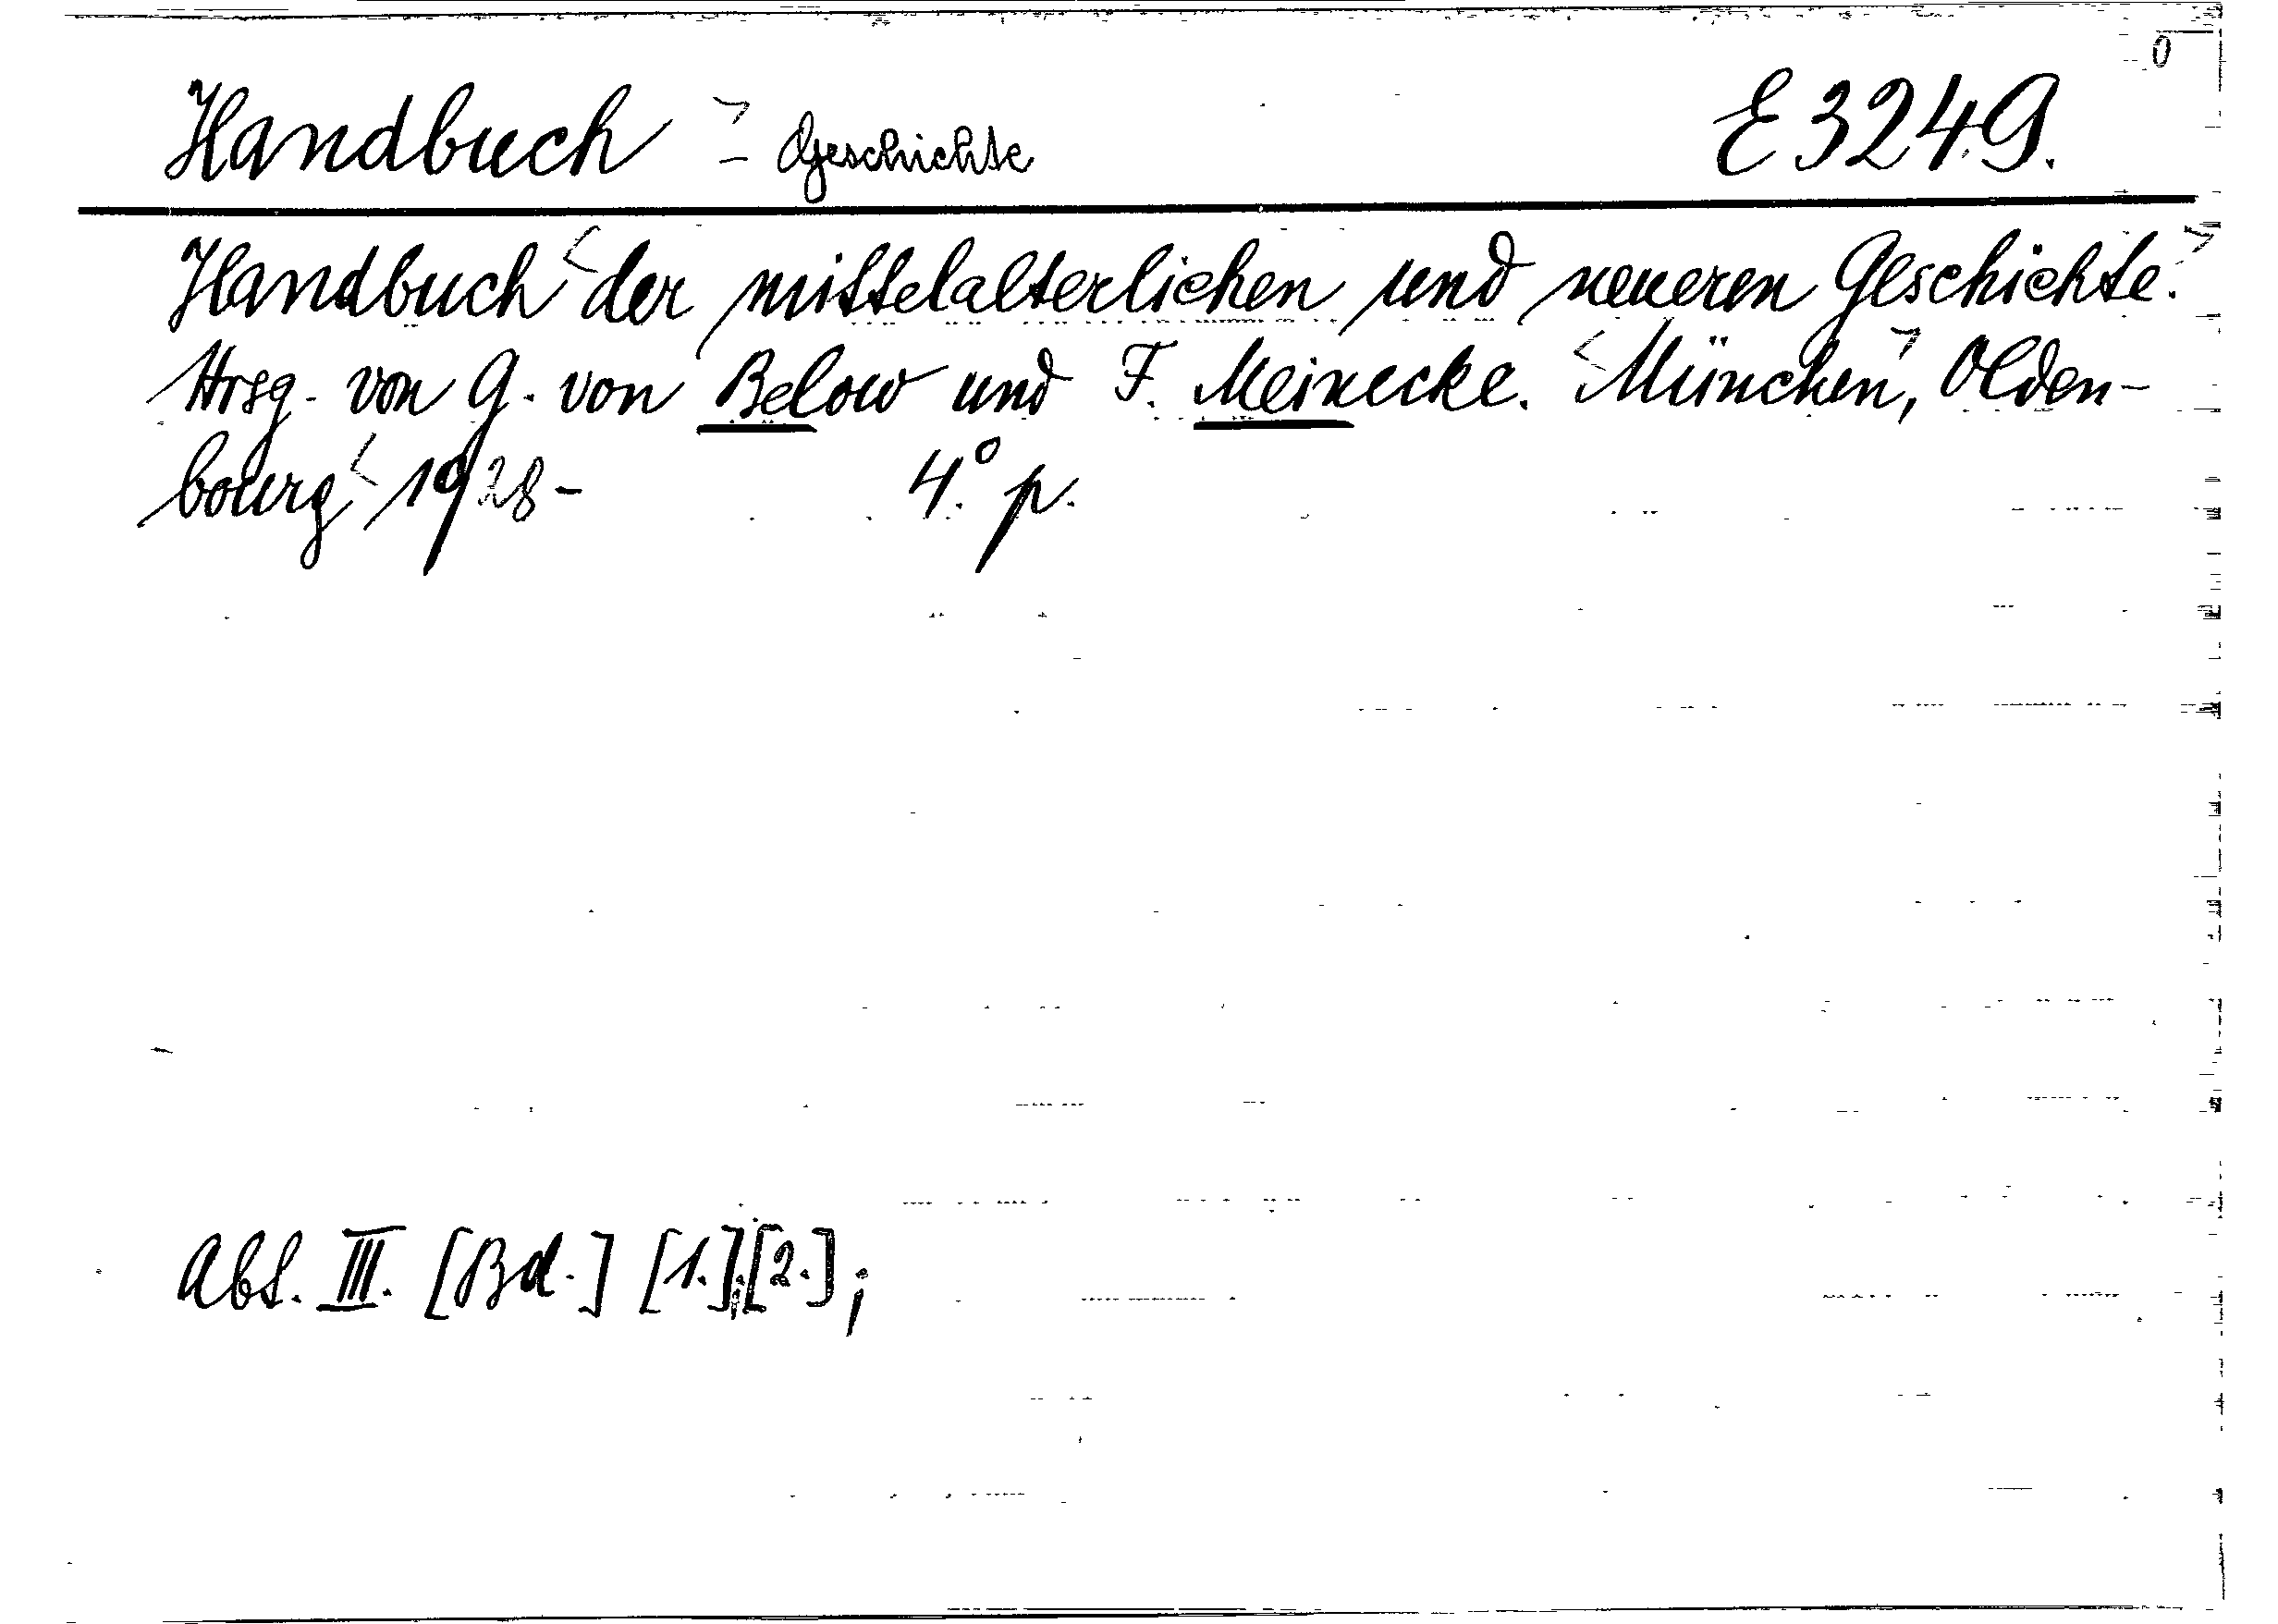 Handbuch - Geschichte E 3249.
Handbuch der mittelalterlichen und neueren Geschichte.
Hrsg. von G. von Below und F. Meinecke. München, Olden-
bourg 1928- 4° p.
Abt. III. [Bd.] [1.];[2.];